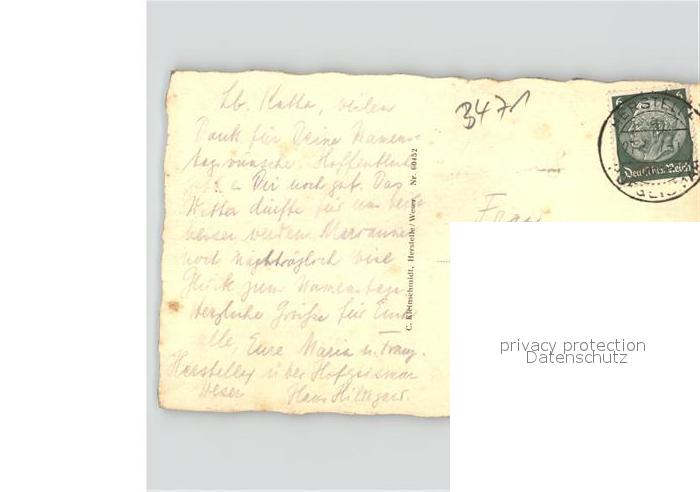 Lb. Kätha, vielen
Dank für Deine Namens-
tagswünsche. Hoffentlich
geht es Dir noch gut. Das
Wetter dürfte für uns
besser werden. Marianne
noch nachträglich viel
Glück zum Namenstage.
Herzliche Grüße für Euch
alle, Eure Maria u. Franz.
Herstelle über Hofgeismar
Weser Haus Hildegard.
C. Kleinschmidt, Herstelle/Weser Nr. 60452
3471
Frau
6 6
Deutsches Reich
HERSTELLE
privacy protection
Datenschutz